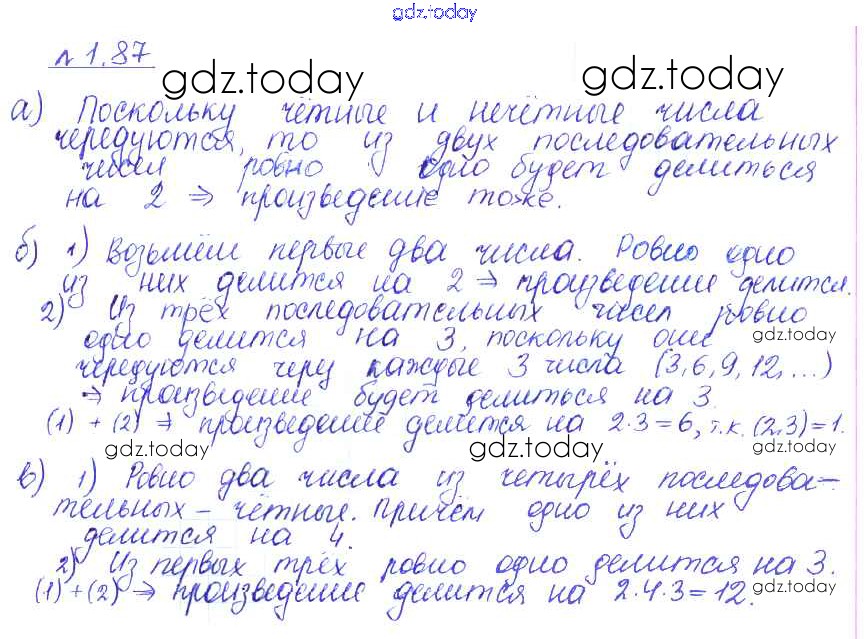 gdz.today
№ 1.87
gdz.today gdz.today
а) Поскольку чётные и нечётные числа
чередуются, то из двух последовательных
чисел ровно одно будет делиться
на 2 ⇒ произведение тоже.
б) 1) Возьмём первые два числа. Ровно одно
из них делится на 2 ⇒ произведение делится.
2) Из трёх последовательных чисел ровно
одно делится на 3, поскольку они gdz.today
чередуются через каждые 3 числа (3,6,9,12,...)
⇒ произведение будет делиться на 3
(1) + (2) ⇒ произведение делится на 2·3=6, т.к. (2,3)=1.
gdz.today gdz.today gdz.today
в) 1) Ровно два числа из четырёх последова-
тельных – чётные. Причём одно из них
делится на 4.
2) Из первых трёх ровно одно делится на 3.
(1)+(2) ⇒ произведение делится на 2·4·3=12. gdz.today